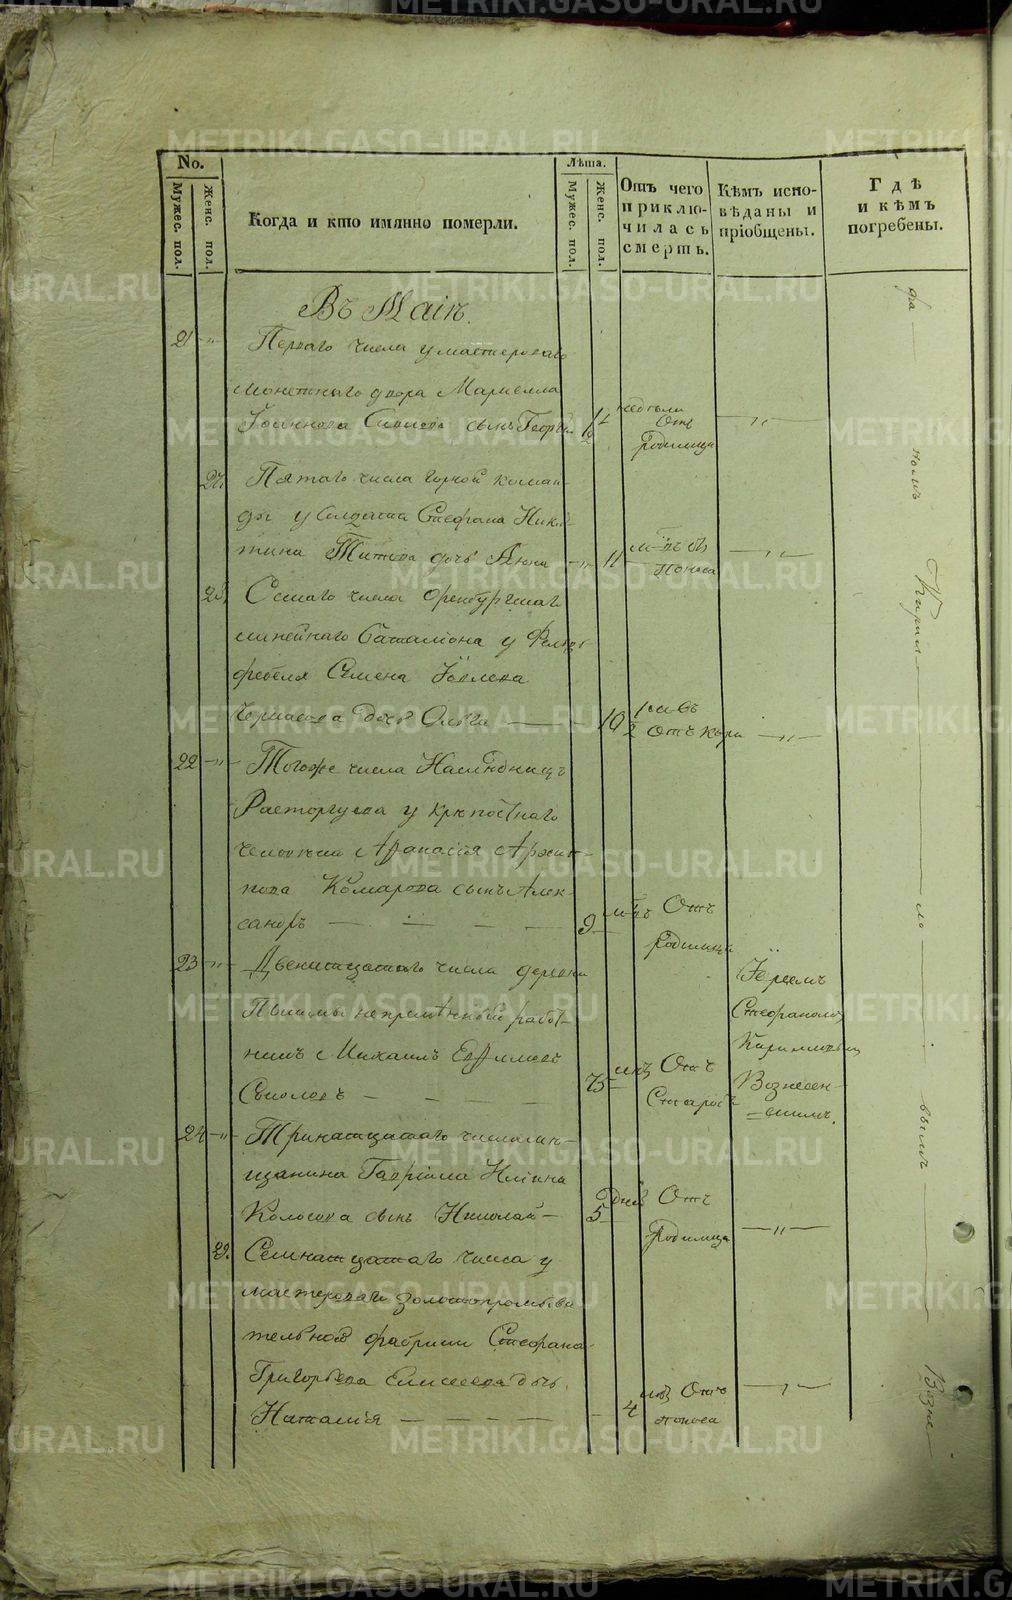 No.
Мужес. пол.
Женс. пол.
Когда и кто имянно померли.
Лѣта.
Мужес. пол.
Женс. пол.
Отъ чего
приклю-
чилась
смерть.
Кѣмъ испо-
вѣданы и
пріобщены.
Гдѣ
и кѣмъ
погребены.
Въ Маіѣ.
21 Перваго числа у мастероваго
монетнаго двора
Іоаннова сынъ Георгій
недѣли
Отъ
Родимца
27. Пятаго числа горной коман-
ды у Солдата Стефана Ники-
тина Титова дочь Анна 11
Поноса
28. Осмаго числа Оренбургскаго
линейнаго Баталіона у Фелт
фебеля Семена Іовлева
дочь Ольга 10 1/2
отъ Кори
22 Тогоже числа Наслѣдницъ
Расторгуева у крѣпостнаго
человѣка Афанасія Архип-
пова Комарова сынъ Алек-
сандръ 9
Отъ
Родимца
23 Двенатцатаго числа деревни
непремѣнный работ-
никъ Михаилъ Ефимовъ
Соколовъ 75
Отъ
Старости
Іереемъ
Стефаномъ
Кирилловымъ
Вознесен-
=скимъ.
24 Тринатцатаго числа мѣ-
щанина Гавріила Ильина
Колосова сынъ Николай
5 дней
Отъ
Родимца
29. Семнатцатаго числа у
мастероваго золотопромыва
тельной фабрики Стефана
Григорьева Елисеева дочь
Наталія 4
Отъ
поноса
Кирил
вымъ
Возне
METRIKI.GASO-URAL.RU